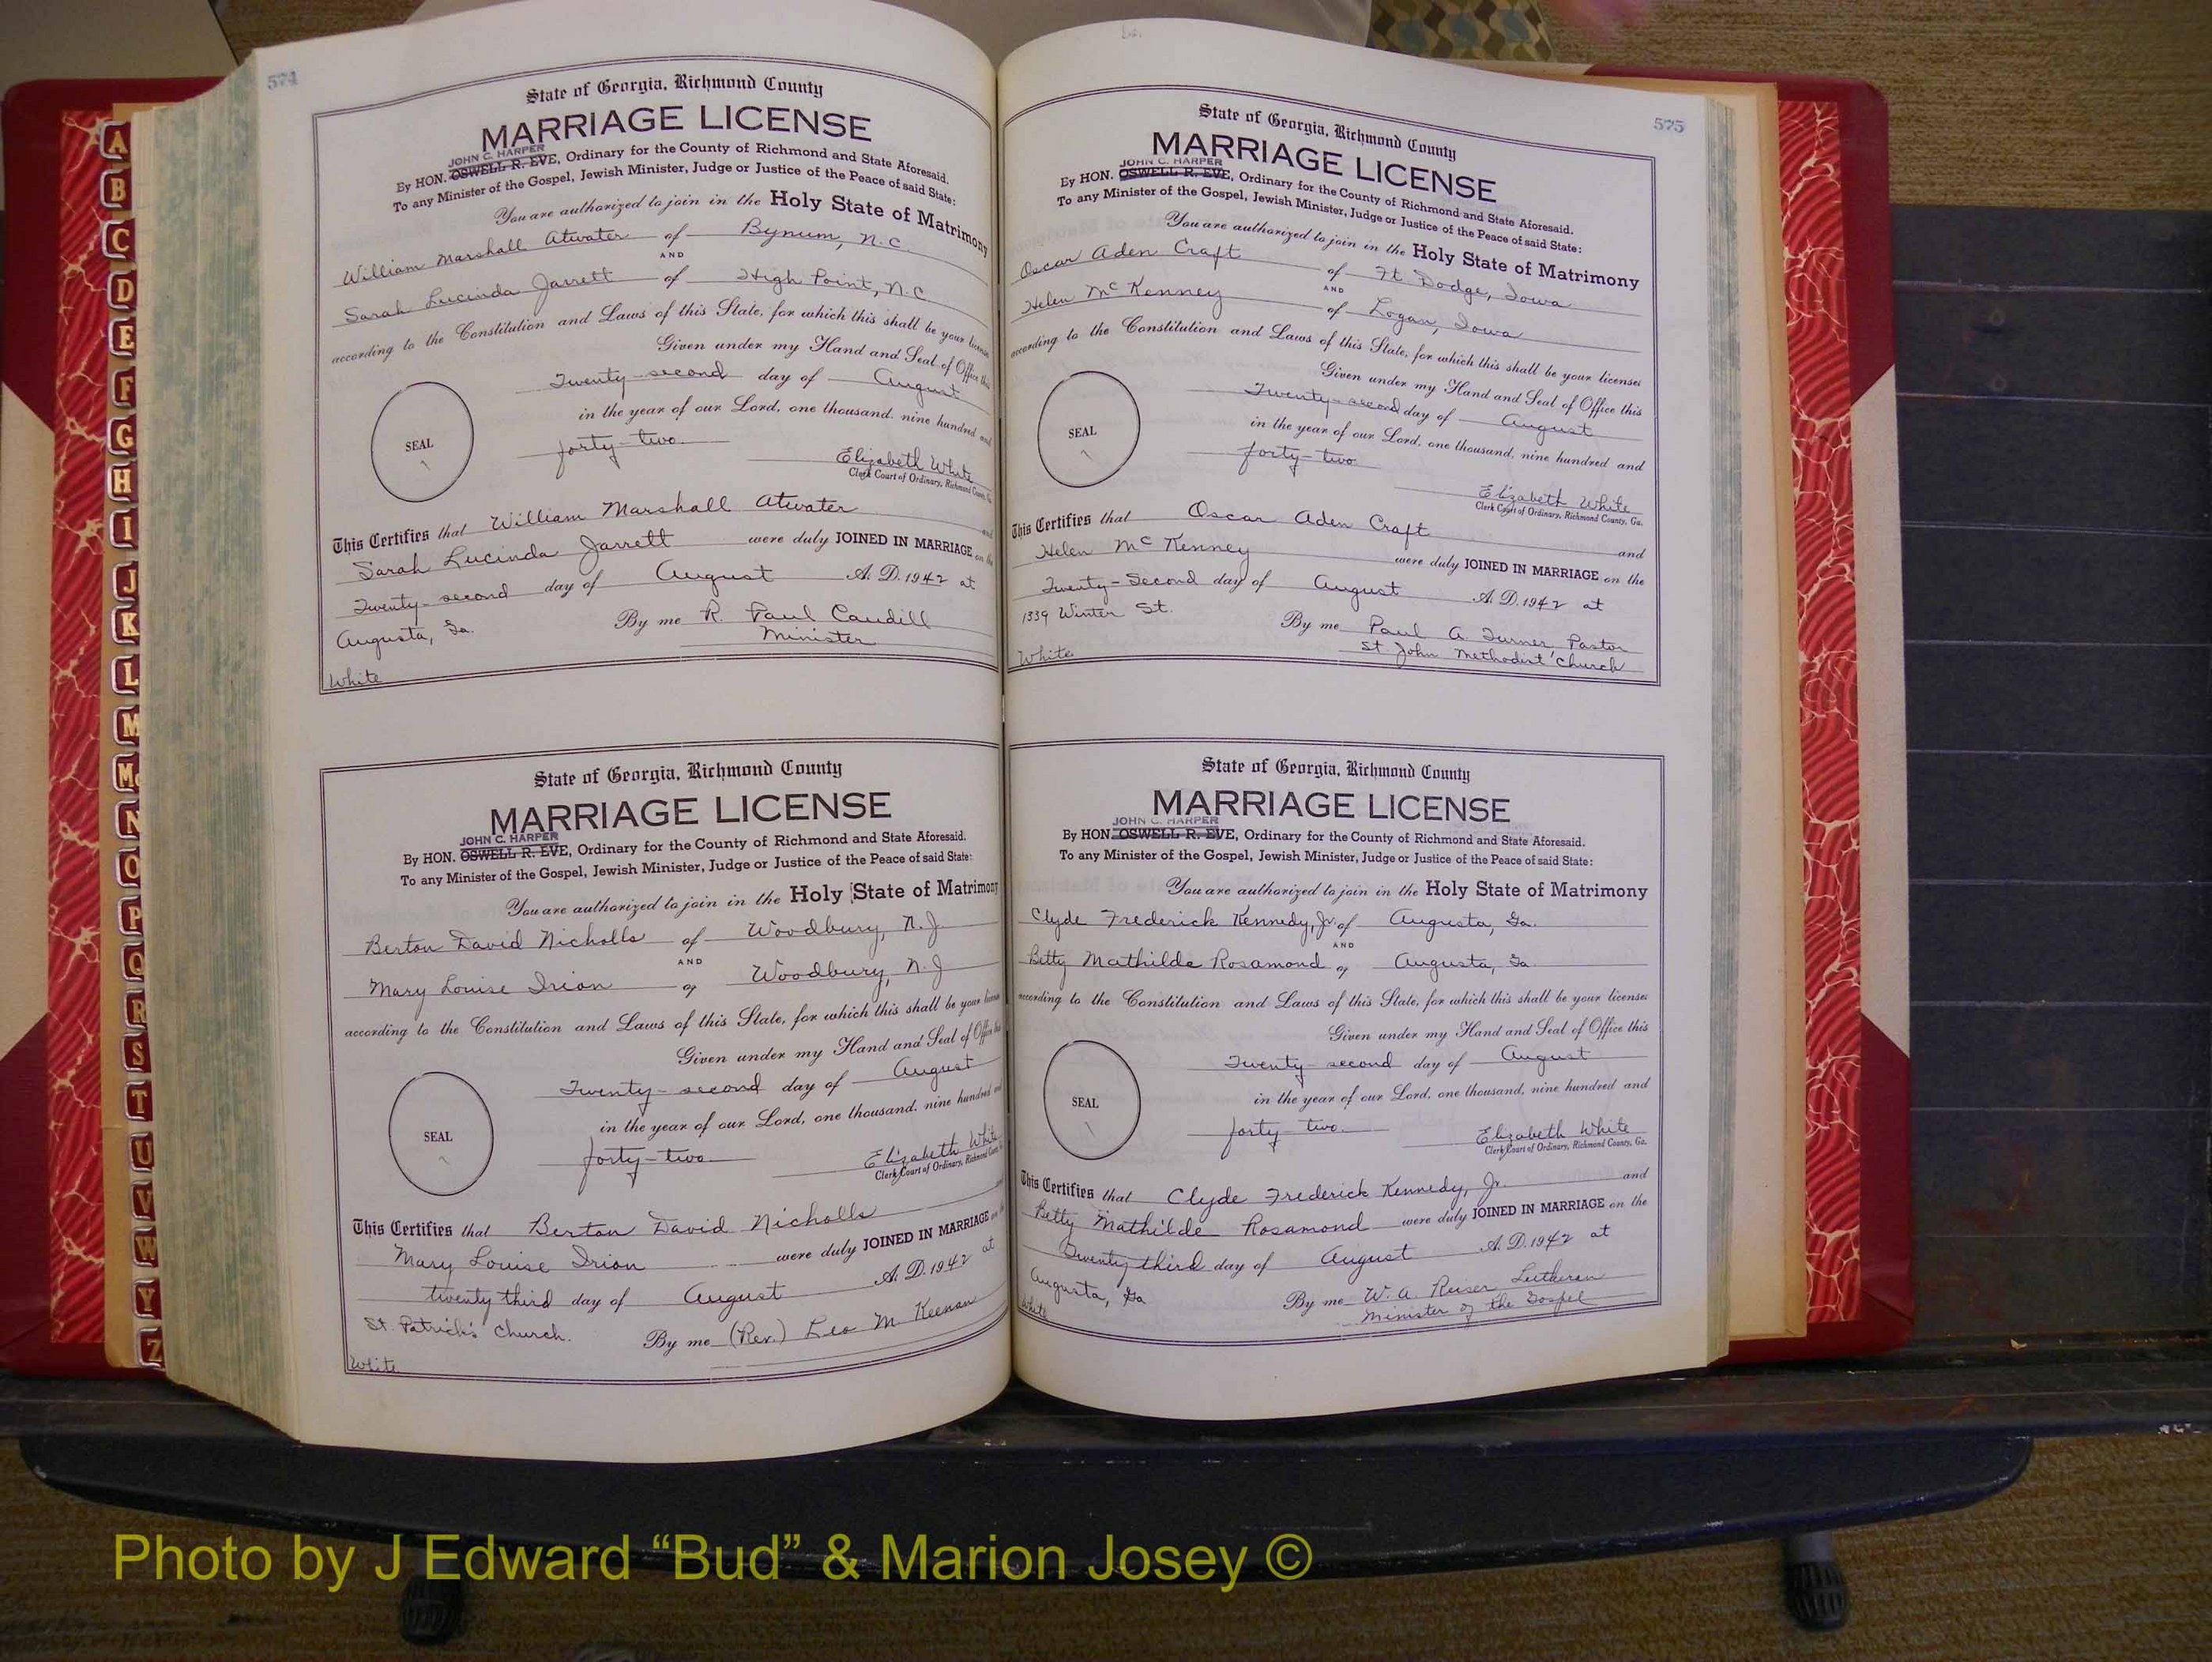 574
State of Georgia, Richmond County
MARRIAGE LICENSE
JOHN C. HARPER
By HON. OSWELL R. EVE, Ordinary for the County of Richmond and State Aforesaid.
To any Minister of the Gospel, Jewish Minister, Judge or Justice of the Peace of said State:
You are authorized to join in the Holy State of Matrimony
William Marshall Atwater of Bynum, N.C.
AND
Sarah Lucinda Jarrett of High Point, N.C.
according to the Constitution and Laws of this State, for which this shall be your license
Given under my Hand and Seal of Office this
Twenty-second day of August
in the year of our Lord, one thousand, nine hundred and
forty-two
SEAL
Elizabeth White
Clerk Court of Ordinary, Richmond County, Ga.
This Certifies that William Marshall Atwater and
Sarah Lucinda Jarrett were duly JOINED IN MARRIAGE on the
Twenty-second day of August A.D. 1942 at
Augusta, Ga. By me R. Paul Caudill
Minister
White
State of Georgia, Richmond County
MARRIAGE LICENSE
JOHN C. HARPER
By HON. OSWELL R. EVE, Ordinary for the County of Richmond and State Aforesaid.
To any Minister of the Gospel, Jewish Minister, Judge or Justice of the Peace of said State:
You are authorized to join in the Holy State of Matrimony
Berton David Nicholls of Woodbury, N.J.
AND
Mary Louise Irion of Woodbury, N.J
according to the Constitution and Laws of this State, for which this shall be your license
Given under my Hand and Seal of Office this
Twenty-second day of August
in the year of our Lord, one thousand, nine hundred and
forty-two
SEAL
Elizabeth White
Clerk Court of Ordinary, Richmond County
This Certifies that Berton David Nicholls
Mary Louise Irion were duly JOINED IN MARRIAGE on the
twenty third day of August A.D. 1942 at
St. Patrick's Church. By me (Rev.) Leo M. Keenan
White
575
State of Georgia, Richmond County
MARRIAGE LICENSE
JOHN C. HARPER
By HON. OSWELL R. EVE, Ordinary for the County of Richmond and State Aforesaid.
To any Minister of the Gospel, Jewish Minister, Judge or Justice of the Peace of said State:
You are authorized to join in the Holy State of Matrimony
Oscar Aden Craft of Ft. Dodge, Iowa
AND
Helen McKenney of Logan, Iowa
according to the Constitution and Laws of this State, for which this shall be your license
Given under my Hand and Seal of Office this
Twenty-second day of August
in the year of our Lord, one thousand, nine hundred and
forty-two
SEAL
Elizabeth White
Clerk Court of Ordinary, Richmond County, Ga.
This Certifies that Oscar Aden Craft and
Helen McKenney were duly JOINED IN MARRIAGE on the
Twenty-Second day of August A.D. 1942 at
1339 Winter St. By me Paul A. Turner, Pastor
St. John Methodist Church
White
State of Georgia, Richmond County
MARRIAGE LICENSE
JOHN C. HARPER
By HON. OSWELL R. EVE, Ordinary for the County of Richmond and State Aforesaid.
To any Minister of the Gospel, Jewish Minister, Judge or Justice of the Peace of said State:
You are authorized to join in the Holy State of Matrimony
Clyde Frederick Kennedy, Jr. of Augusta, Ga.
AND
Betty Mathilde Rosamond of Augusta, Ga.
according to the Constitution and Laws of this State, for which this shall be your license
Given under my Hand and Seal of Office this
Twenty-second day of August
in the year of our Lord, one thousand, nine hundred and
forty-two
SEAL
Elizabeth White
Clerk Court of Ordinary, Richmond County, Ga.
This Certifies that Clyde Frederick Kennedy, Jr. and
Betty Mathilde Rosamond were duly JOINED IN MARRIAGE on the
Twenty third day of August A.D. 1942 at
Augusta, Ga By me W. A. Reiser Lutheran
Minister of the Gospel
White
A
B
C
D
E
F
G
H
I
J
K
L
M
Mc
N
O
P
Q
R
S
T
U
V
W
Y
Z
Photo by J Edward “Bud” & Marion Josey ©